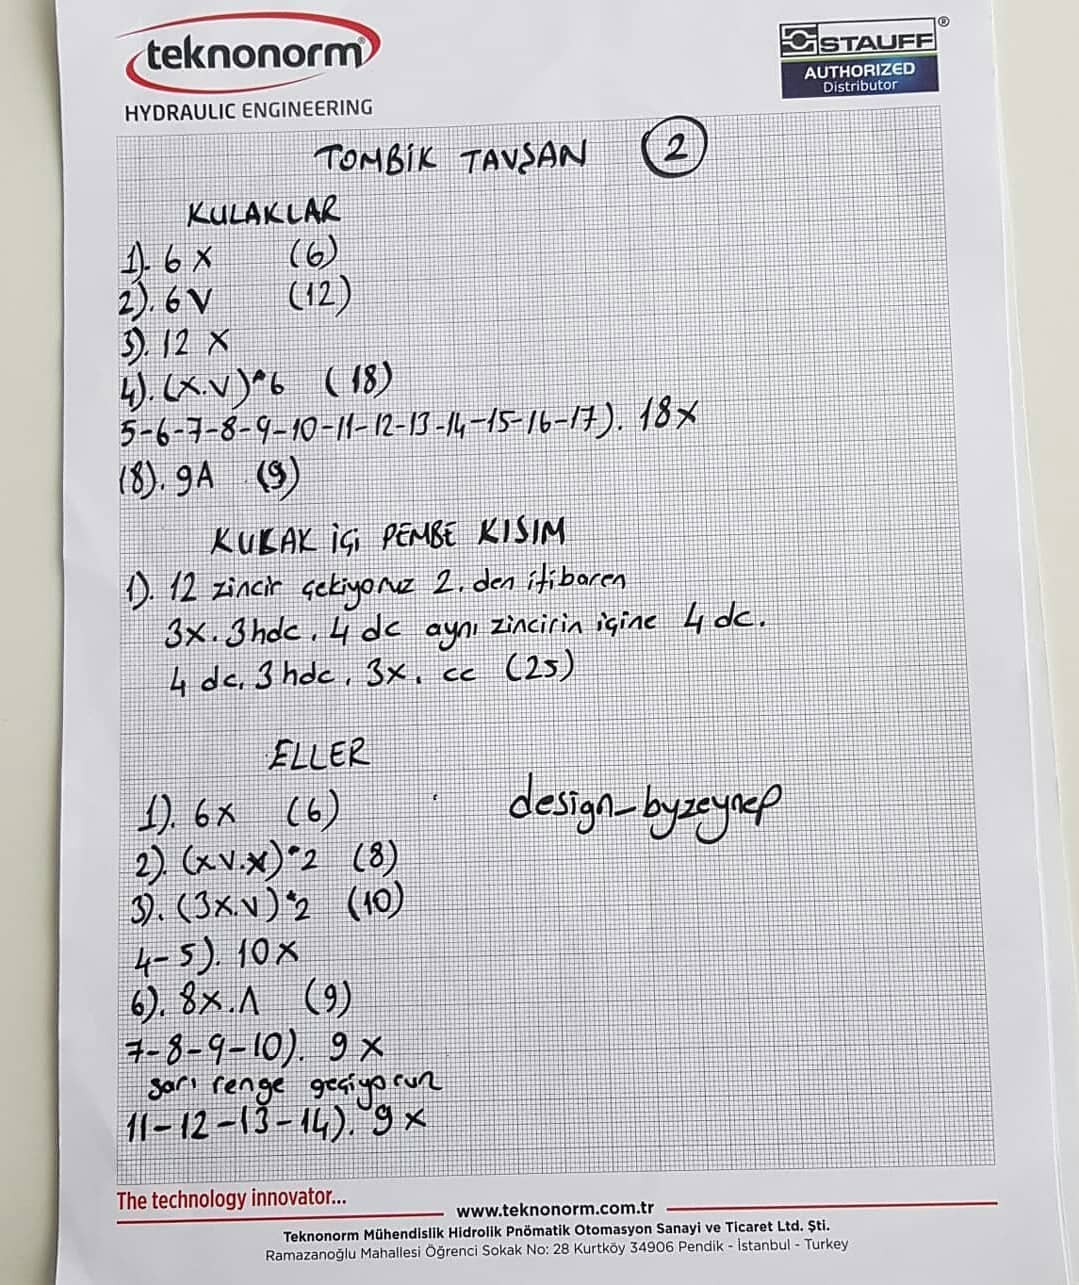 teknonorm®
HYDRAULIC ENGINEERING
STAUFF®
AUTHORIZED
Distributor
TOMBİK TAVŞAN 2
KULAKLAR
1). 6 x (6)
2). 6 V (12)
3). 12 x
4). (x.v)*6 (18)
5-6-7-8-9-10-11-12-13-14-15-16-17). 18x
18). 9A (9)
KULAK İÇİ PEMBE KISIM
1). 12 zincir çekiyoruz 2. den itibaren
3x. 3hdc. 4 dc aynı zincirin içine 4 dc.
4 dc, 3 hdc, 3x, cc (25)
ELLER
1). 6x (6)
2). (x v.x)*2 (8)
3). (3x.v)*2 (10)
4-5). 10x
6). 8x.Λ (9)
7-8-9-10). 9 x
sarı renge geçiyorun
11-12-13-14). 9 x
design_byzeynep
The technology innovator...
www.teknonorm.com.tr
Teknonorm Mühendislik Hidrolik Pnömatik Otomasyon Sanayi ve Ticaret Ltd. Şti.
Ramazanoğlu Mahallesi Öğrenci Sokak No: 28 Kurtköy 34906 Pendik - İstanbul - Turkey